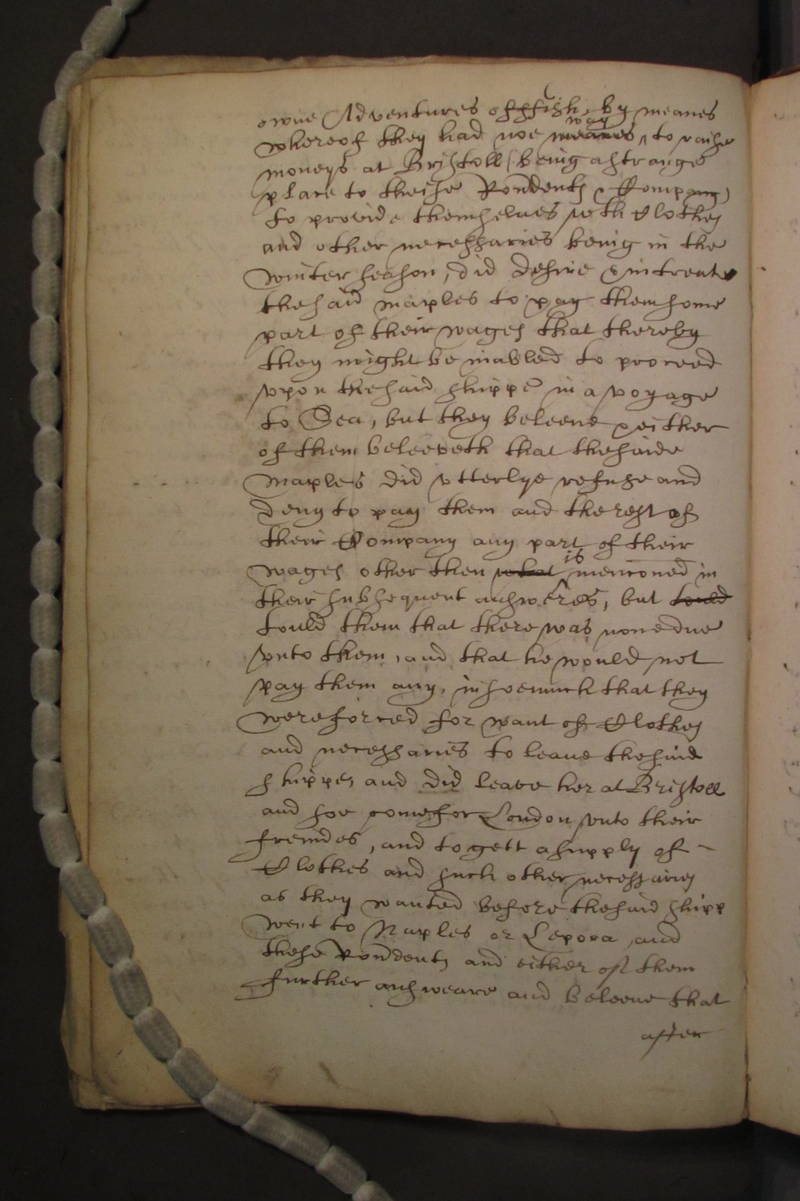 owne Adventures of ffish, by meanes
whereof they had noe meanes way, to raise
moneys at Bristoll (being a strange
place to theise Rondents & Company)
to provide themselves with Clothes
and other necessaries being in the
winter season, did desire & intreate
the said Maples to pay them some
part of their wages that thereby
they might be inabled to proceed
vpon the said shippe in a voyage
to Sea, but they beleeve & either
of them beleeveth that the saide
Maples did vtterlye refuse and
deny to pay them and the rest of
their Company any part of their
wages other then what is mencioned in
their subsequent answeres, but tould
tould them that there was none due
vnto them, and that he would not
pay them any, in soe much that they
were forced for want of Clothes
and necessaries to leave the said
shippe, and did leave her at Bristoll
and soe come for London vnto their
freindes, and to gett a supply of
Clothes and such other necessaries
as they wanted before the said shipp
went to Naples or Lepora, and
these Rondents and either of them
further answeare and beleeve that
after